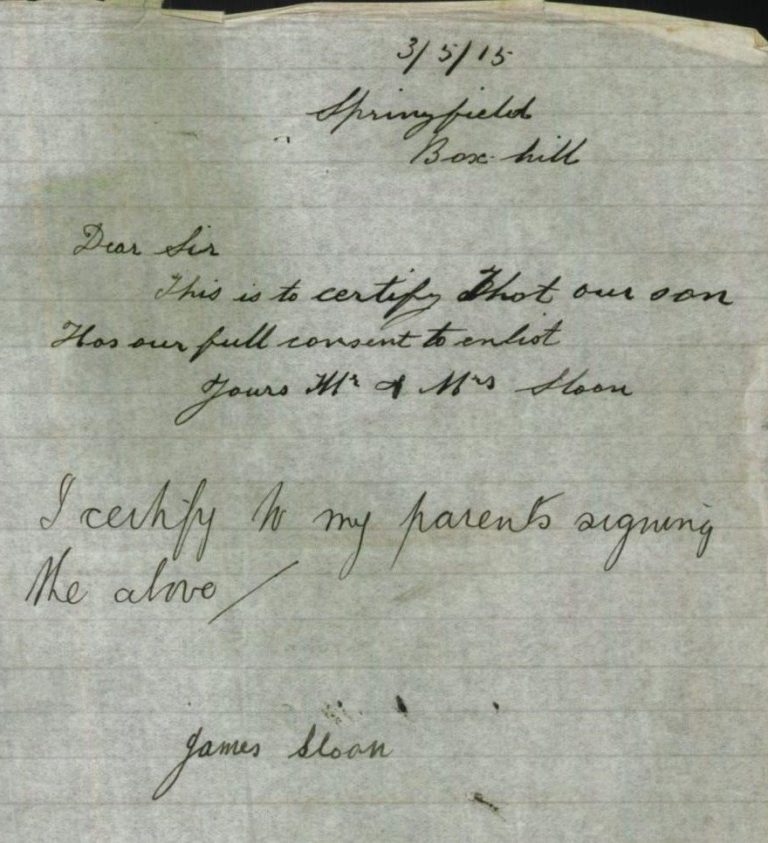 3/5/15
Springfield
Box hill
Dear Sir
This is to certify that our son
Has our full consent to enlist
Yours Mr & Mrs Sloan
I certify to my parents signing
the above /
James Sloan